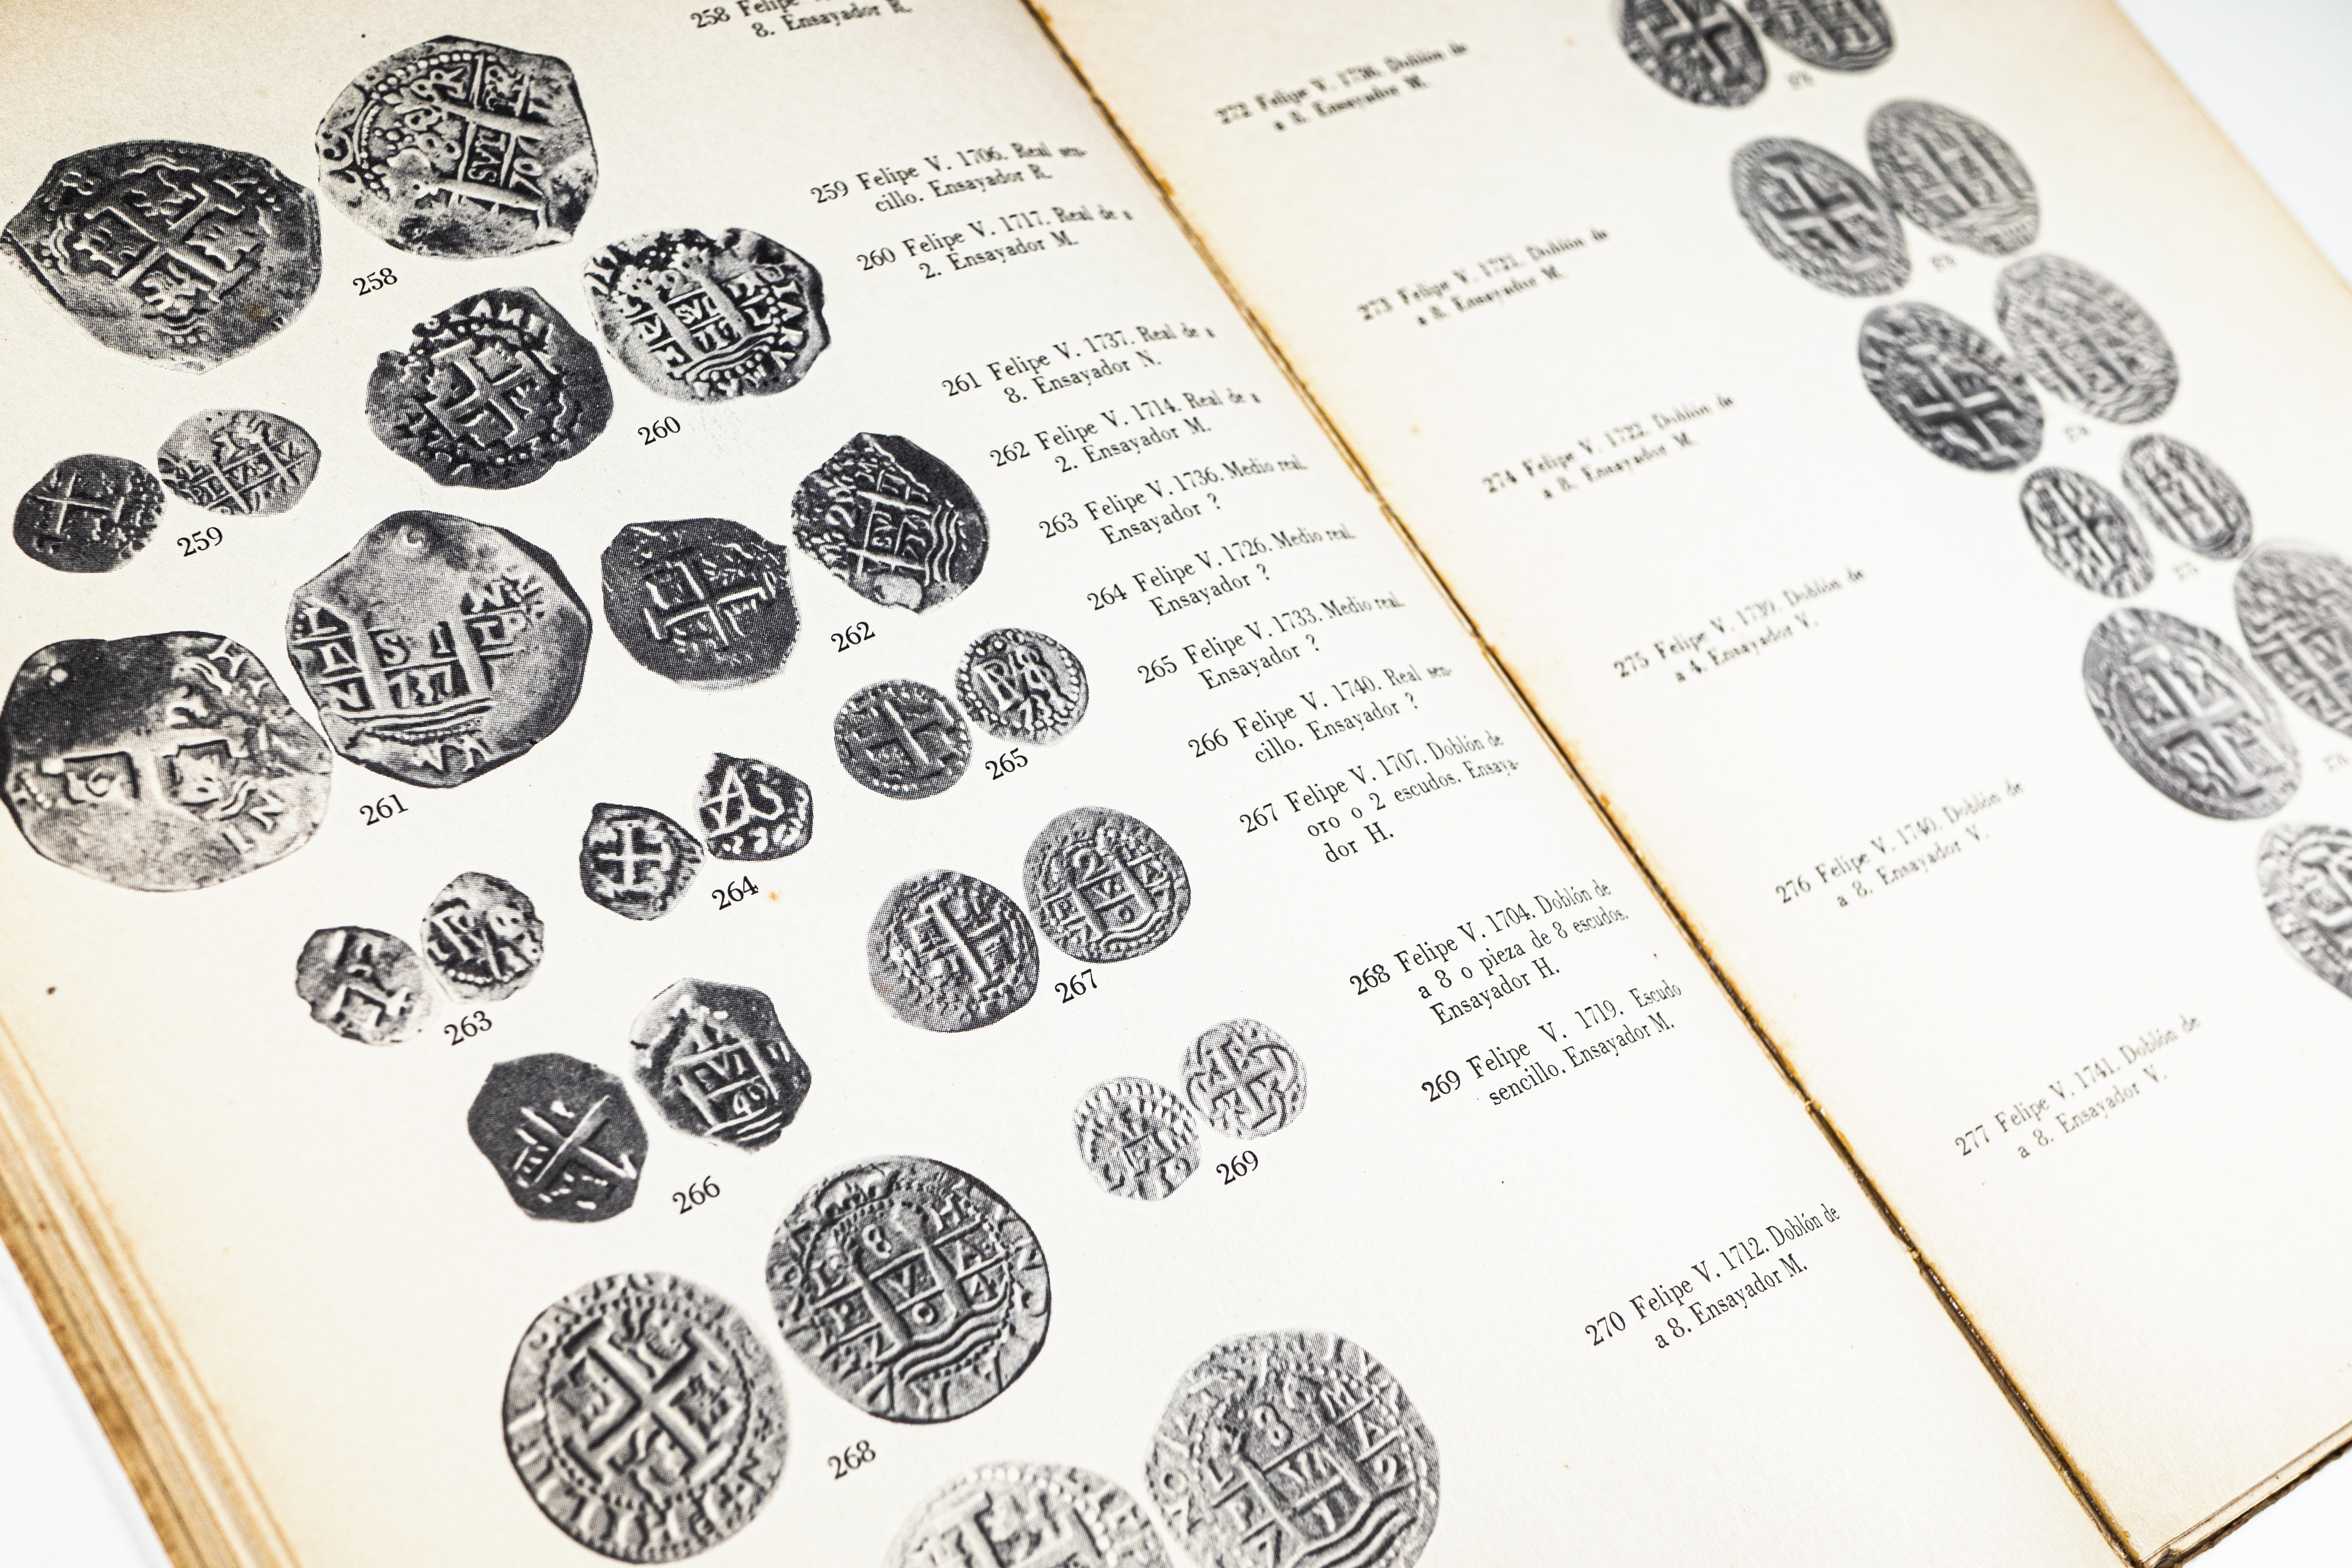 258 Felipe
8. Ensayador R.
259 Felipe V. 1706. Real sen-
cillo. Ensayador R.
260 Felipe V. 1717. Real de a
2. Ensayador M.
261 Felipe V. 1737. Real de a
8. Ensayador N.
262 Felipe V. 1714. Real de a
2. Ensayador M.
263 Felipe V. 1736. Medio real.
Ensayador ?
264 Felipe V. 1726. Medio real.
Ensayador ?
265 Felipe V. 1733. Medio real.
Ensayador ?
266 Felipe V. 1740. Real sen-
cillo. Ensayador ?
267 Felipe V. 1707. Doblón de
oro o 2 escudos. Ensaya-
dor H.
268 Felipe V. 1704. Doblón de
a 8 o pieza de 8 escudos.
Ensayador H.
269 Felipe V. 1719. Escudo
sencillo. Ensayador M.
270 Felipe V. 1712. Doblón de
a 8. Ensayador M.
258
260
259
262
261
265
264
267
263
266
269
268
272 Felipe V. Doblón de
a 8. Ensayador M.
273 Felipe V. 1721. Doblón de
a 8. Ensayador M.
274 Felipe V. 1722. Doblón de
a 8. Ensayador M.
275 Felipe V. 1739. Doblón de
a 4. Ensayador V.
276 Felipe V. 1740. Doblón de
a 8. Ensayador V.
277 Felipe V. 1741. Doblón de
a 8. Ensayador V.